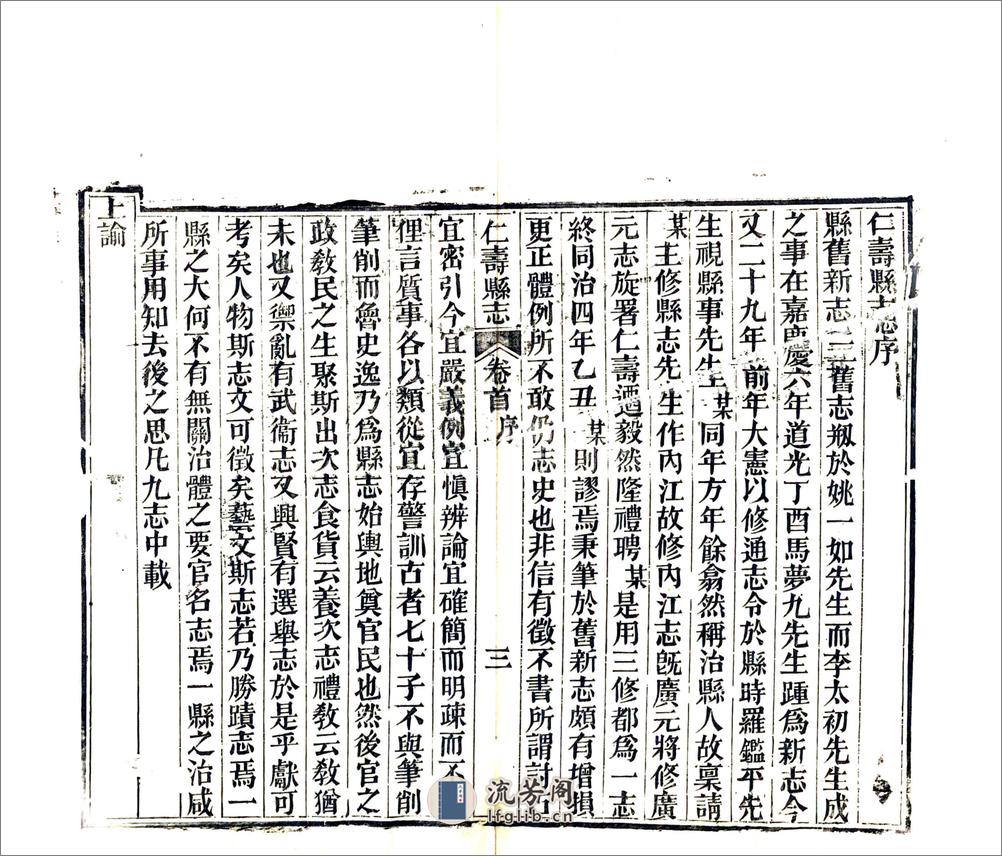 仁壽縣志序
縣舊新志二舊志剏於姚一如先生而李太初先生成
之事在嘉慶六年道光丁酉馬夢九先生踵爲新志今
又二十九年前年大憲以修通志令於縣時羅鑑平先
生視縣事先生某同年方年餘翕然稱治縣人故稟請
某主修縣志先生作內江故修內江志旣廣元將修廣
元志旋署仁壽遹毅然隆禮聘某是用三修都爲一志
終同治四年乙丑某則謬焉秉筆於舊新志頗有增損
更正體例所不敢仍志史也非信有徵不書所謂討古
仁壽縣志 卷首 序 三
宜密引今宜嚴義例宜愼辨論宜確簡而明疎而不
俚言質事各以類從宜存警訓古者七十子不與筆削
筆削而魯史逸乃爲縣志始輿地奠官民也然後官之
政敎民之生聚斯出次志食貨云養次志禮敎云敎猶
未也又禦亂有武衞志又興賢有選舉志於是乎獻可
考矣人物斯志文可徵矣藝文斯志若乃勝蹟志焉一
縣之大何不有無關治體之要官名志焉一縣之治咸
所事用知去後之思凡九志中載
上諭
流芳阁
lfglib.cn